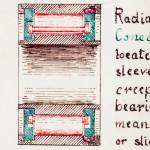 Radia
Conce
locate
sleeve
creep
beari
mean
or sli